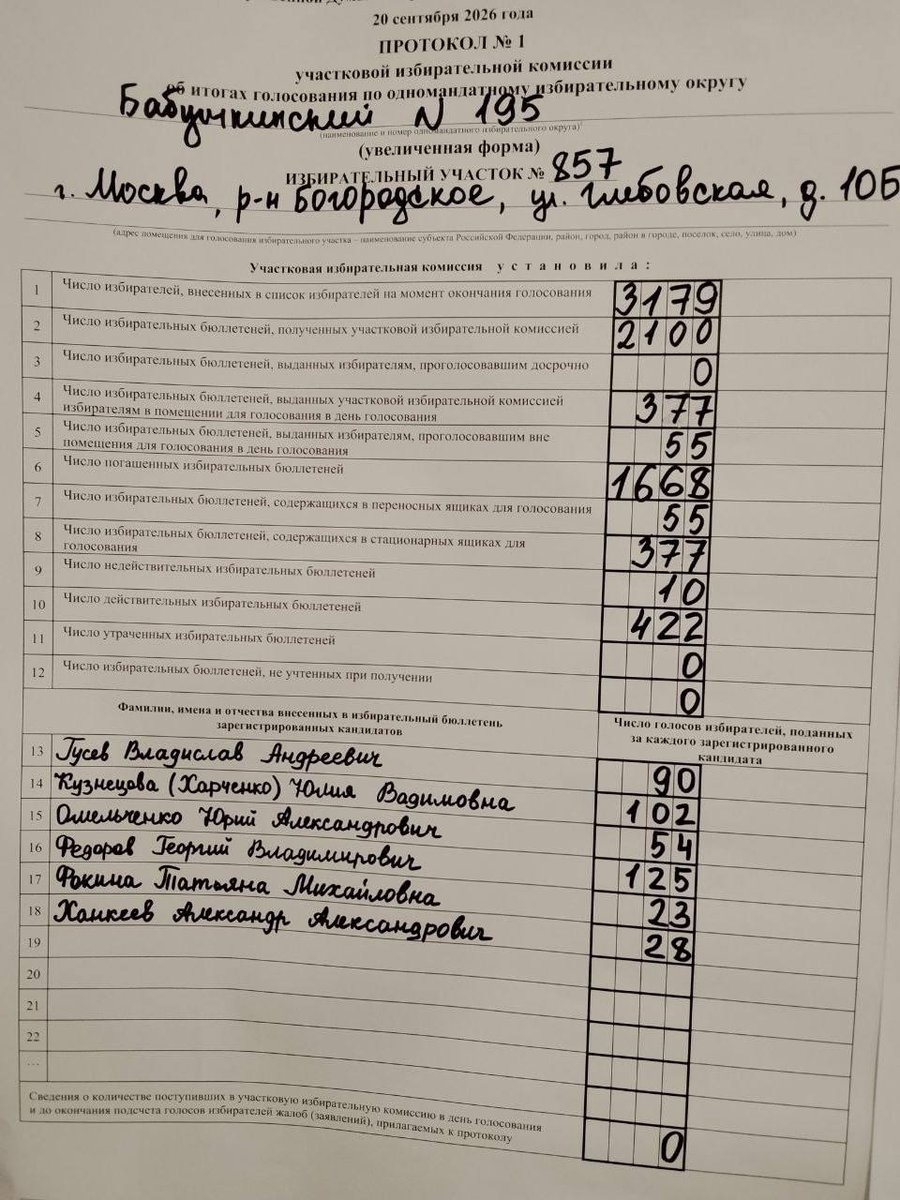 20 сентября 2026 года
ПРОТОКОЛ № 1
участковой избирательной комиссии
об итогах голосования по одномандатному избирательному округу
Бабушкинский N 195
(наименование и номер одномандатного избирательного округа)
(увеличенная форма)
ИЗБИРАТЕЛЬНЫЙ УЧАСТОК № 857
г. Москва, р-н Богородское, ул. Глебовская, д. 10Б
(адрес помещения для голосования избирательного участка – наименование субъекта Российской Федерации, район, город, район в городе, поселок, село, улица, дом)
Участковая избирательная комиссия установила:
1 Число избирателей, внесенных в список избирателей на момент окончания голосования 3179
2 Число избирательных бюллетеней, полученных участковой избирательной комиссией 2100
3 Число избирательных бюллетеней, выданных избирателям, проголосовавшим досрочно 0
4 Число избирательных бюллетеней, выданных участковой избирательной комиссией
избирателям в помещении для голосования в день голосования 377
5 Число избирательных бюллетеней, выданных избирателям, проголосовавшим вне
помещения для голосования в день голосования 55
6 Число погашенных избирательных бюллетеней 1668
7 Число избирательных бюллетеней, содержащихся в переносных ящиках для голосования 55
8 Число избирательных бюллетеней, содержащихся в стационарных ящиках для
голосования 377
9 Число недействительных избирательных бюллетеней 10
10 Число действительных избирательных бюллетеней 422
11 Число утраченных избирательных бюллетеней 0
12 Число избирательных бюллетеней, не учтенных при получении 0
Фамилии, имена и отчества внесенных в избирательный бюллетень
зарегистрированных кандидатов
Число голосов избирателей, поданных
за каждого зарегистрированного
кандидата
13 Гусев Владислав Андреевич 90
14 Кузнецова (Харченко) Юлия Вадимовна 102
15 Омельченко Юрий Александрович 54
16 Федоров Георгий Владимирович 125
17 Фокина Татьяна Михайловна 23
18 Ханкеев Александр Александрович 28
19
20
21
22
...
Сведения о количестве поступивших в участковую избирательную комиссию в день голосования
и до окончания подсчета голосов избирателей жалоб (заявлений), прилагаемых к протоколу 0